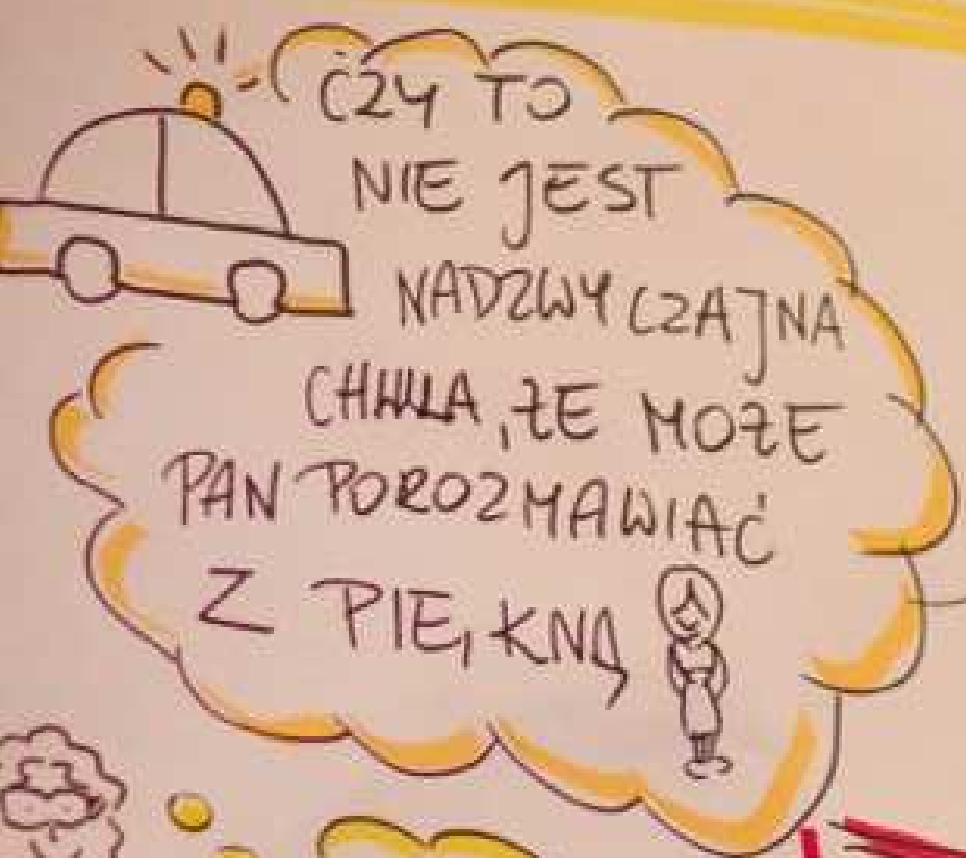 CZY TO
NIE JEST
NADZWYCZAJNA
CHWILA, ŻE MOŻE
PAN POROZMAWIAĆ
Z PIĘKNĄ